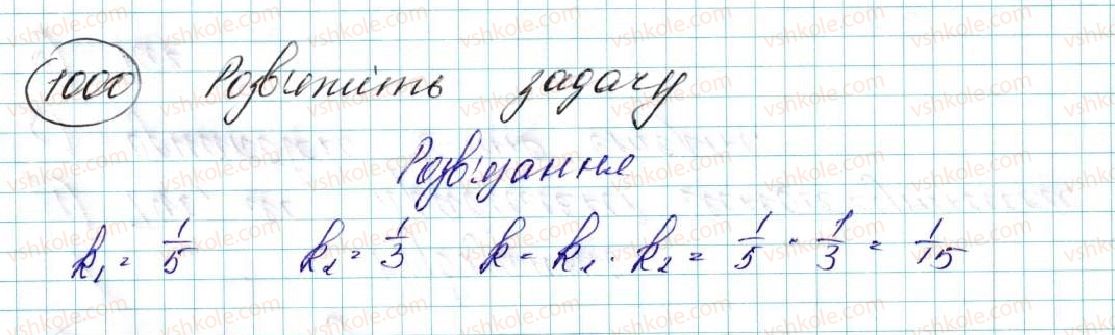 1000 Розв'яжіть задачу
Розв'язання
k₁ = 1/5 k₂ = 1/3 k = k₁ · k₂ = 1/5 · 1/3 = 1/15